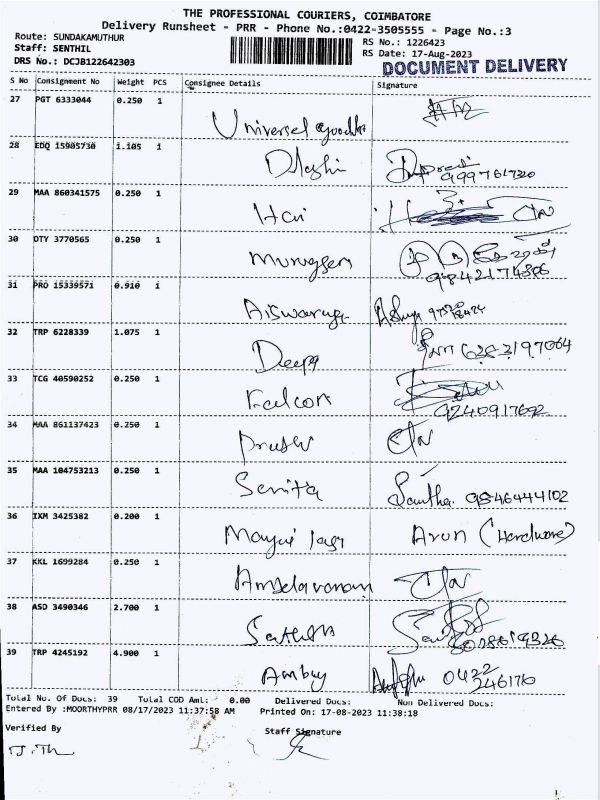 THE PROFESSIONAL COURIERS, COIMBATORE
Delivery Runsheet - PRR - Phone No.:0422-3505555 - Page No.:3
Route: SUNDAKAMUTHUR
RS No.: 1226423
Staff: SENTHIL
RS Date: 17-Aug-2023
DRS No.: DCJB122642303
DOCUMENT DELIVERY
S No Consignment No Weight PCS Consignee Details Signature
27 PGT 6333044 0.250 1
Universel
28 EDQ 15905730 1.105 1
29 MAA 860341575 0.250 1
Hari
30 OTY 3770565 0.250 1
Murugesan
9842174306
31 PRO 15339571 0.910 1
Aiswarya
32 TRP 6228339 1.075 1
Deepa
33 TCG 40590252 0.250 1
Falcon
9240917692
34 MAA 861137423 0.250 1
35 MAA 104753213 0.250 1
Savita Santha 9846444102
36 IXM 3425382 0.200 1
Arun (Hardware)
37 KKL 1699284 0.250 1
38 ASD 3490346 2.700 1
39 TRP 4245192 4.900 1
0422
246170
Total No. Of Docs: 39 Total COD Amt: 0.00 Delivered Docs: Non Delivered Docs:
Entered By :MOORTHYPRR 08/17/2023 11:37:58 AM Printed On: 17-08-2023 11:38:18
Verified By Staff Signature